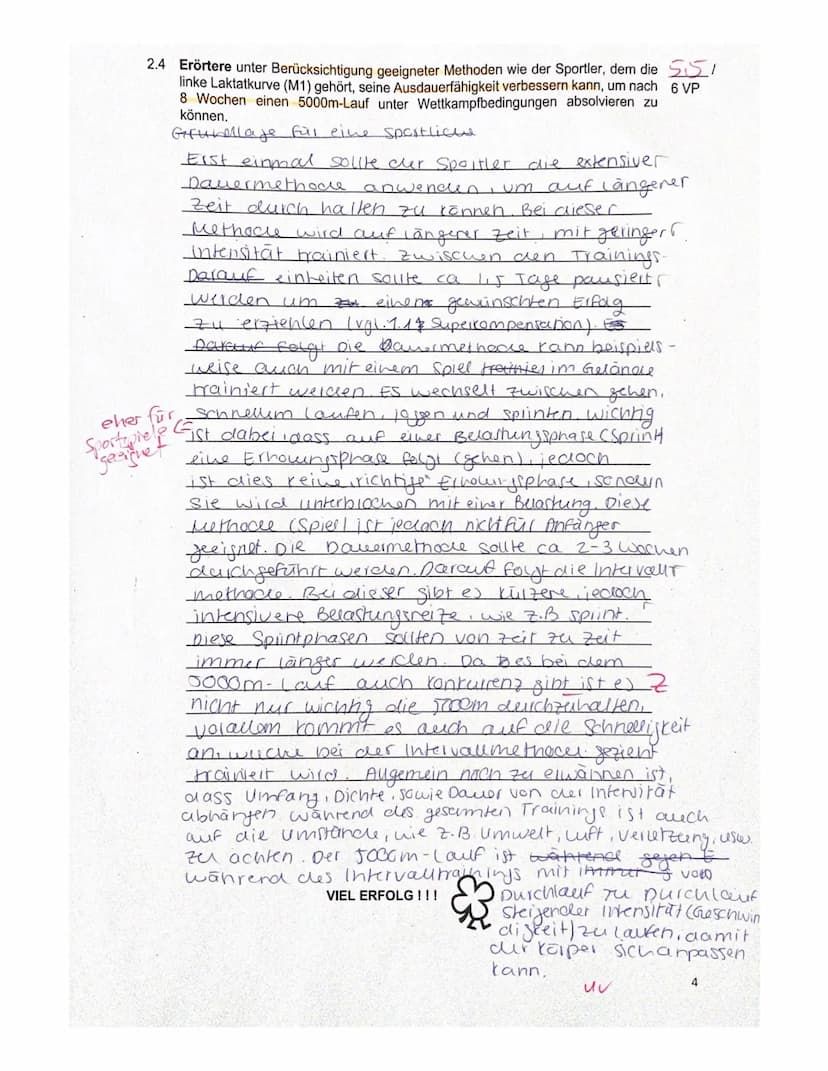 2.4 Erörtere unter Berücksichtigung geeigneter Methoden wie der Sportler, dem die 5,5 /
linke Laktatkurve (M1) gehört, seine Ausdauerfähigkeit verbessern kann, um nach 6 VP
8 Wochen einen 5000m-Lauf unter Wettkampfbedingungen absolvieren zu
können.
Grundlage für eine sportliche
Erst einmal sollte der Sportler die extensiver
Dauermethode anwenden, um auf längerer
Zeit durch halten zu können. Bei dieser
Methode wird auf längerer Zeit, mit geringer
Intensität trainiert. Zwischen den Trainings-
Darauf einheiten sollte ca 1,5 Tage pausiert
werden um zu einen gewünschten Erfolg
zu erziehlen (vgl. 1.1 Superkompensation). Es
Darauf folgt Die Dauermethode kann beispiels-
weise auch mit einem Spiel im Gelände
trainiert werden. Es wechselt zwischen gehen,
schnellem laufen, joggen und sprinten. Wichtig
eher für
Sportspiele
geeignet
ist dabei, dass auf einer Belastungsphase (Sprint)
eine Erholungsphase folgt (gehen), jedoch
ist dies keine "richtige" Erholungsphase, sondern
sie wird unterbrochen mit einer Belastung. Diese
Methode (Spiel) ist jedoch nicht für Anfänger
geeignet. Die Dauermethode sollte ca 2-3 Wochen
durchgeführt werden. Darauf folgt die Intervall
methode. Bei dieser gibt es kürzere, jedoch
intensivere Belastungsreize, wie z.B sprint.
Diese Sprintphasen sollten von Zeit zu Zeit
immer länger werden. Da es bei dem
5000m-Lauf auch Konkurrenz gibt ist es Z
nicht nur wichtig die 5000m durchzuhalten,
vorallem kommt es auch auf die Schnelligkeit
an, welche bei der Intervallmethode gezielt
trainiert wird. Allgemein noch zu erwähnen ist,
dass Umfang, Dichte, sowie Dauer von der Intensität
abhängen. Während des gesamten Trainings ist auch
auf die Umstände, wie z.B. Umwelt, Luft, Verletzung, usw.
zu achten. Der 5000m-Lauf ist während gegen
während des Intervalltrainings mit immer von
VIEL ERFOLG ! ! !
Durchlauf zu Durchlauf
steigender Intensität (Geschwin
digkeit) zu laufen, damit
der Körper sich anpassen
kann.
4